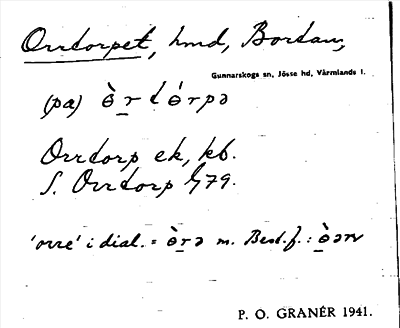 Orrtorpet, hmd, Bortan,
Gunnarskogs sn, Jösse hd, Värmlands l.
(pa) ò̱r t ó̱rpə
Orrtorp ek, kb.
S. Orrtorp 79.
'orre' i dial. = ò̱rə m. Best. f. :
P. O. GRANÉR 1941.